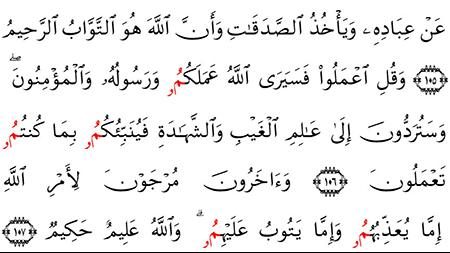 عَنۡ عِبَادِهِۦ وَيَأۡخُذُ ٱلصَّدَقَٰتِ وَأَنَّ ٱللَّهَ هُوَ ٱلتَّوَّابُ ٱلرَّحِيمُ
١٠٥ وَقُلِ ٱعۡمَلُواْ فَسَيَرَى ٱللَّهُ عَمَلَكُمُۥ وَرَسُولُهُۥ وَٱلۡمُؤۡمِنُونَۖ
وَسَتُرَدُّونَ إِلَىٰ عَٰلِمِ ٱلۡغَيۡبِ وَٱلشَّهَٰدَةِ فَيُنَبِّئُكُمُۥ بِمَا كُنتُمُۥ
تَعۡمَلُونَ ١٠٦ وَءَاخَرُونَ مُرۡجَوۡنَ لِأَمۡرِ ٱللَّهِ
إِمَّا يُعَذِّبُهُمُۥ وَإِمَّا يَتُوبُ عَلَيۡهِمُۥۗ وَٱللَّهُ عَلِيمٌ حَكِيمٌ ١٠٧